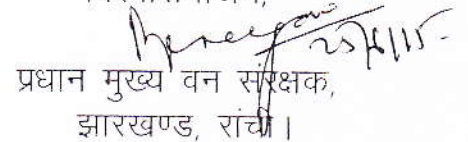 25/6/15
प्रधान मुख्य वन संरक्षक,
झारखण्ड, रांची।